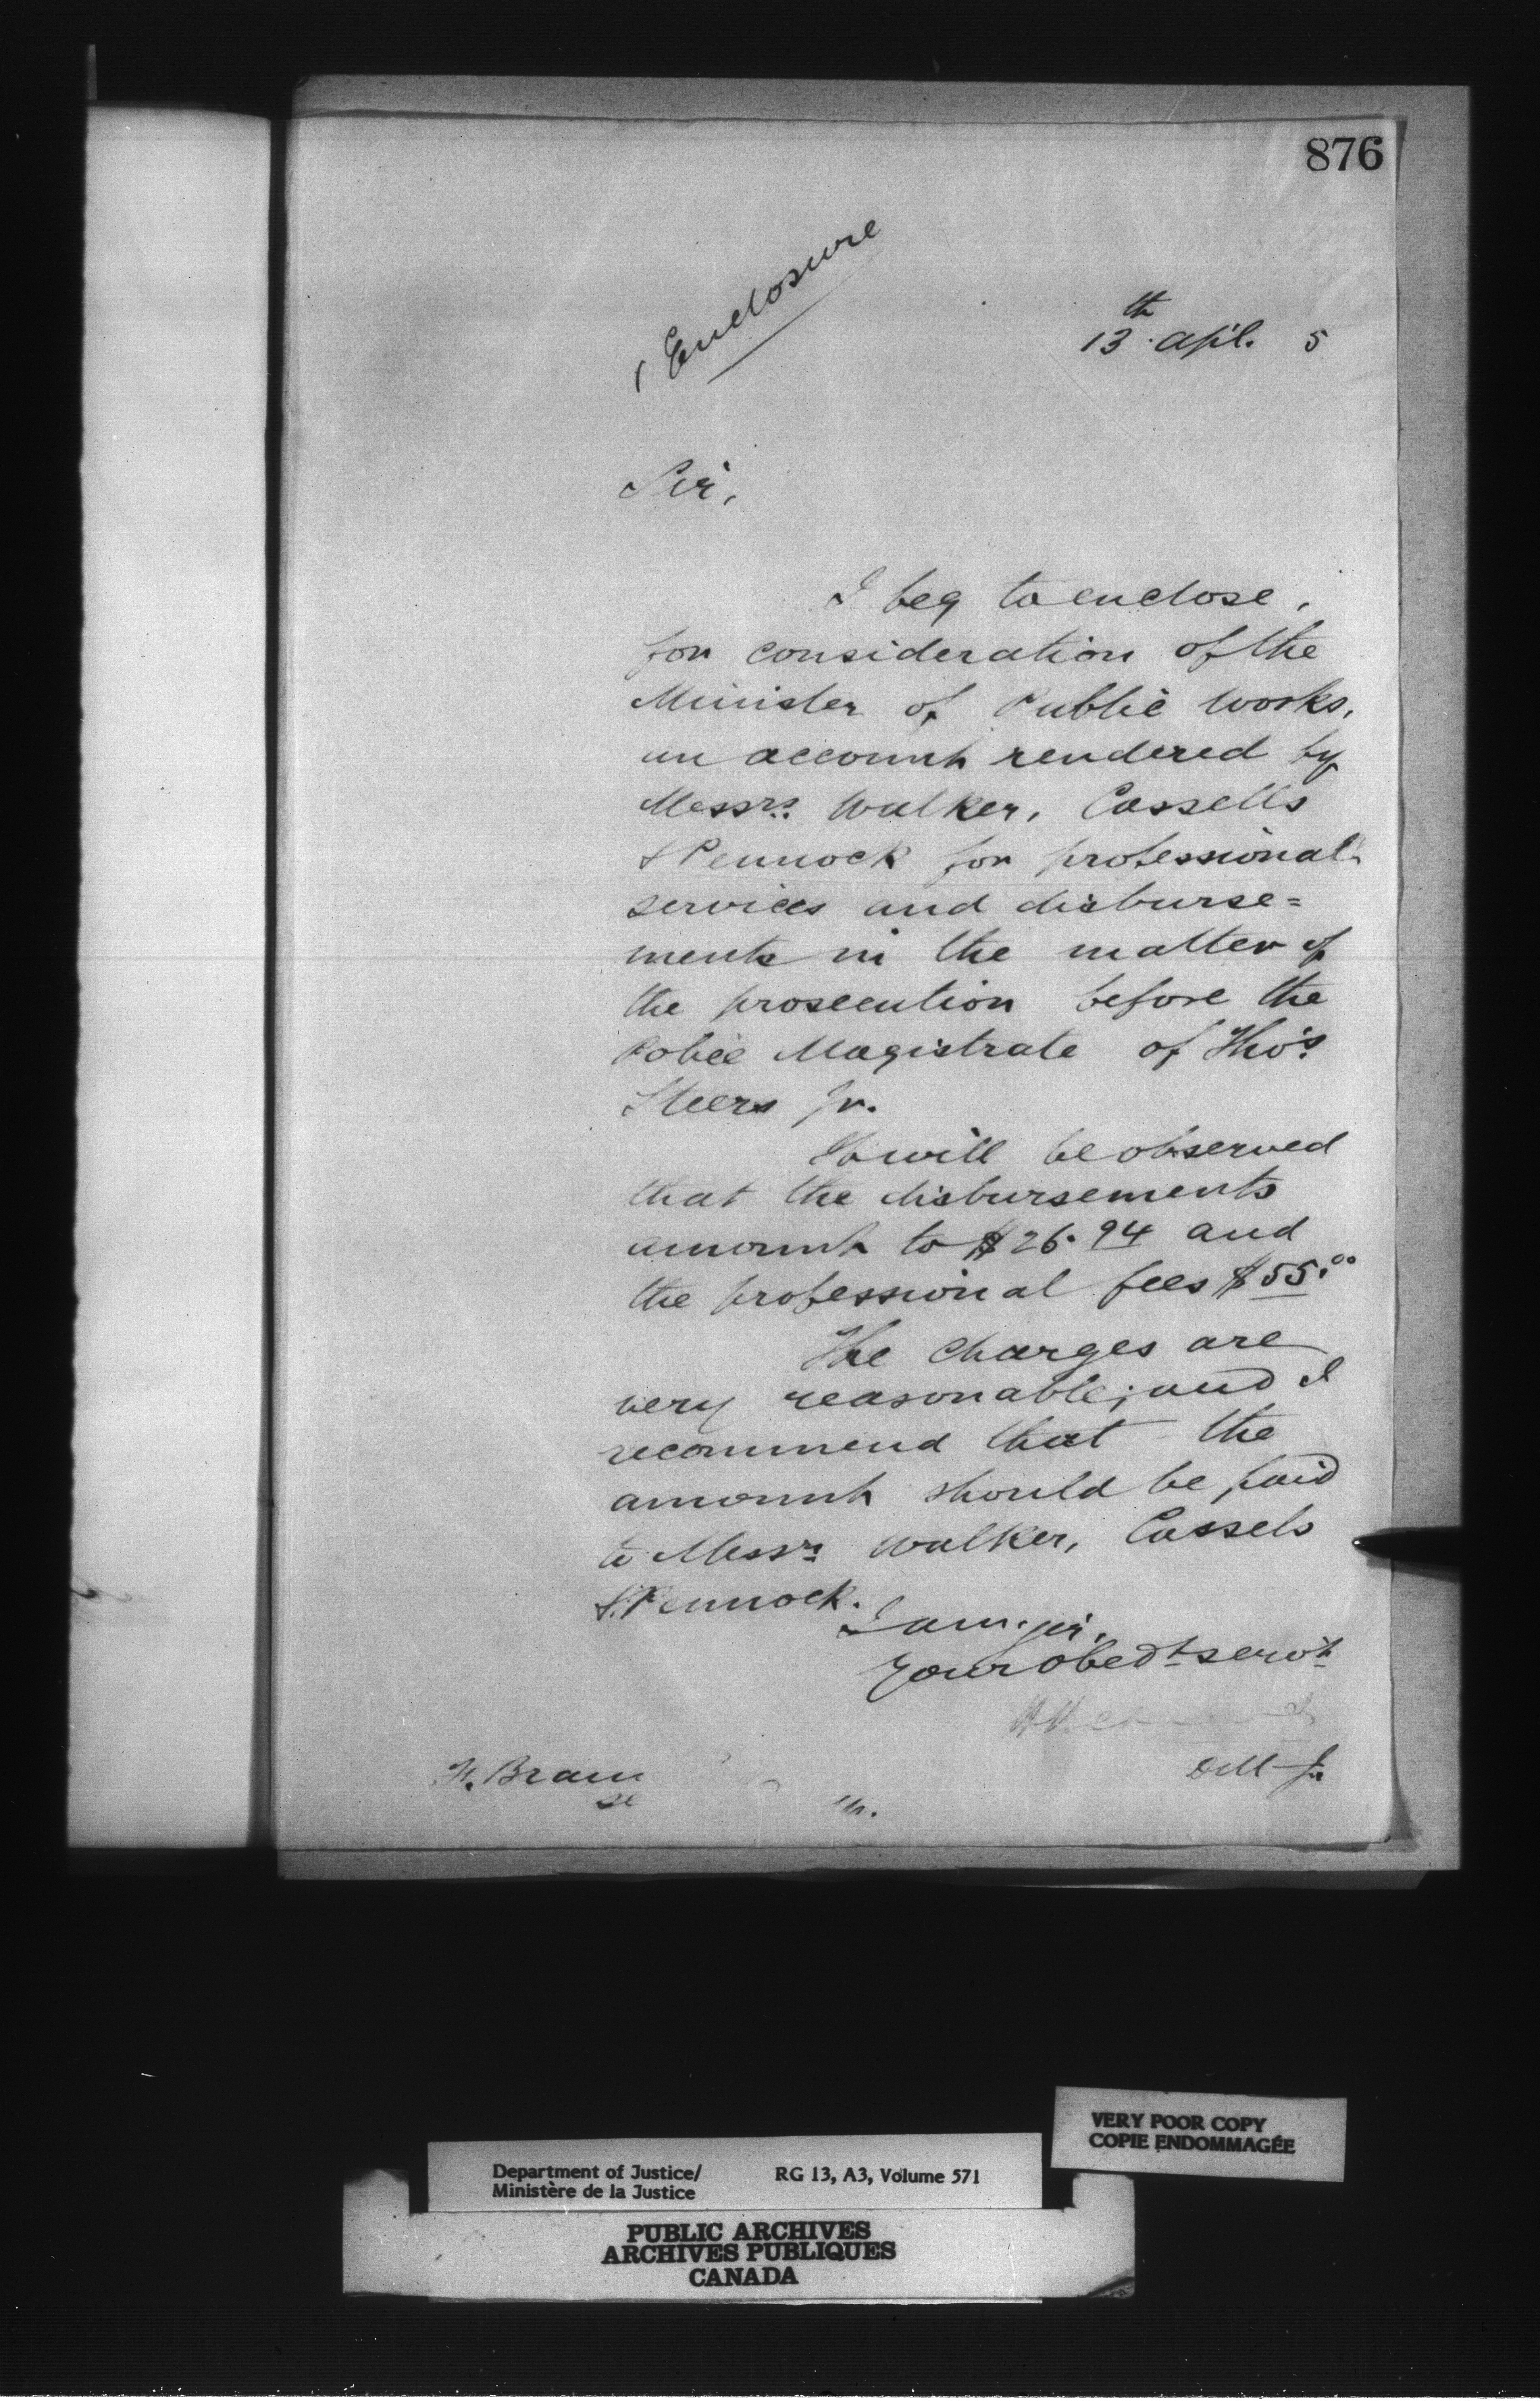 876
1 Enclosure
13th Apl. 5
Sir,
I beg to enclose,
for consideration of the
Minister of Public Works,
an account rendered by
Messrs. Walker, Cassells
& Pennock for professional
services and disburse=
ments in the matter of
the prosecution before the
Police Magistrate of Tho's.
Steers Jr.
It will be observed
that the disbursements
amount to $26.94 and
the professional fees $55.00
The charges are
very reasonable; and I
recommend that the
amount should be paid
to Messrs Walker, Cassels
& Pennock.
I am, sir,
Your obedt servt
D M J.
F. Braun
VERY POOR COPY
COPIE ENDOMMAGÉE
Department of Justice/ RG 13, A3, Volume 571
Ministère de la Justice
PUBLIC ARCHIVES
ARCHIVES PUBLIQUES
CANADA